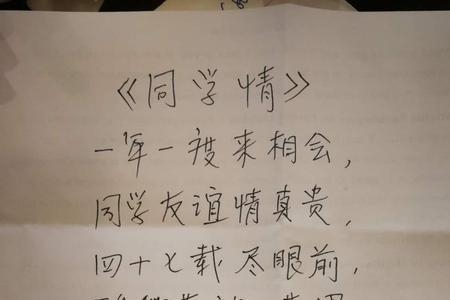 《同学情》
一年一度来相会，
同学友谊情真贵，
四十七载尽眼前，